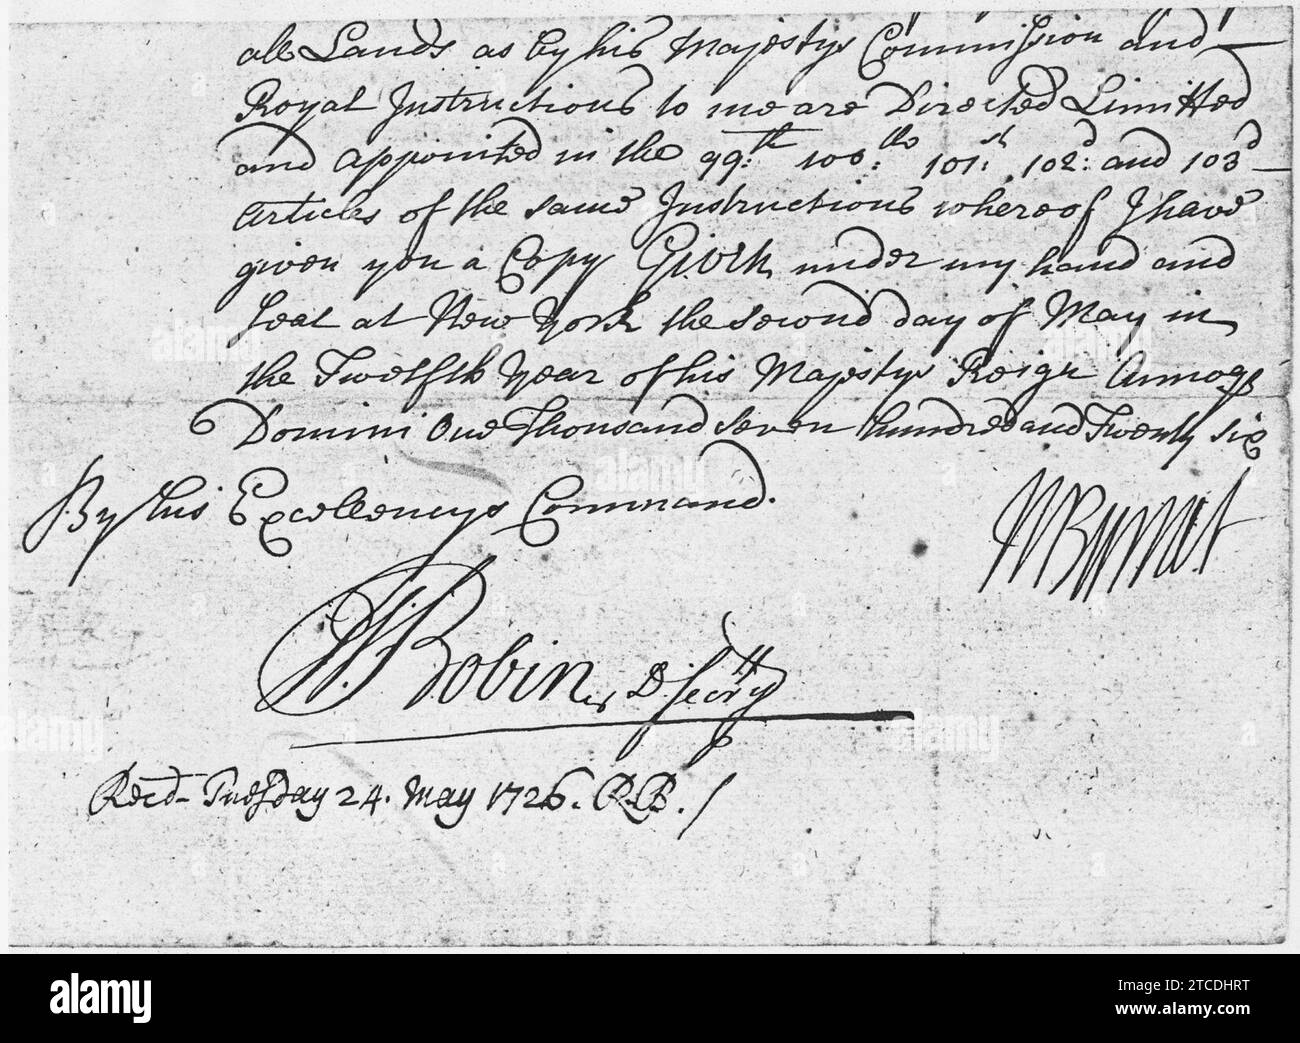 all Lands as by his Majestys Commission and
Royal Instructions to me are Directed Limitted
and appointed in the 99:th 100:th 101:st 102:d and 103d
Articles of the same Instructions whereof I have
given you a Copy Given under my hand and
Seal at New York the second day of May in
the Twelfth Year of his Majestys Reign Annoqe
Domini One Thousand seven hundred and Twenty six
By his Excellencys Command.
W Burnet
Is: Robin D. Secry
Recd Tuesday 24. May 1726. R.B.
alamy
Image ID: 2TCDHRT
www.alamy.com